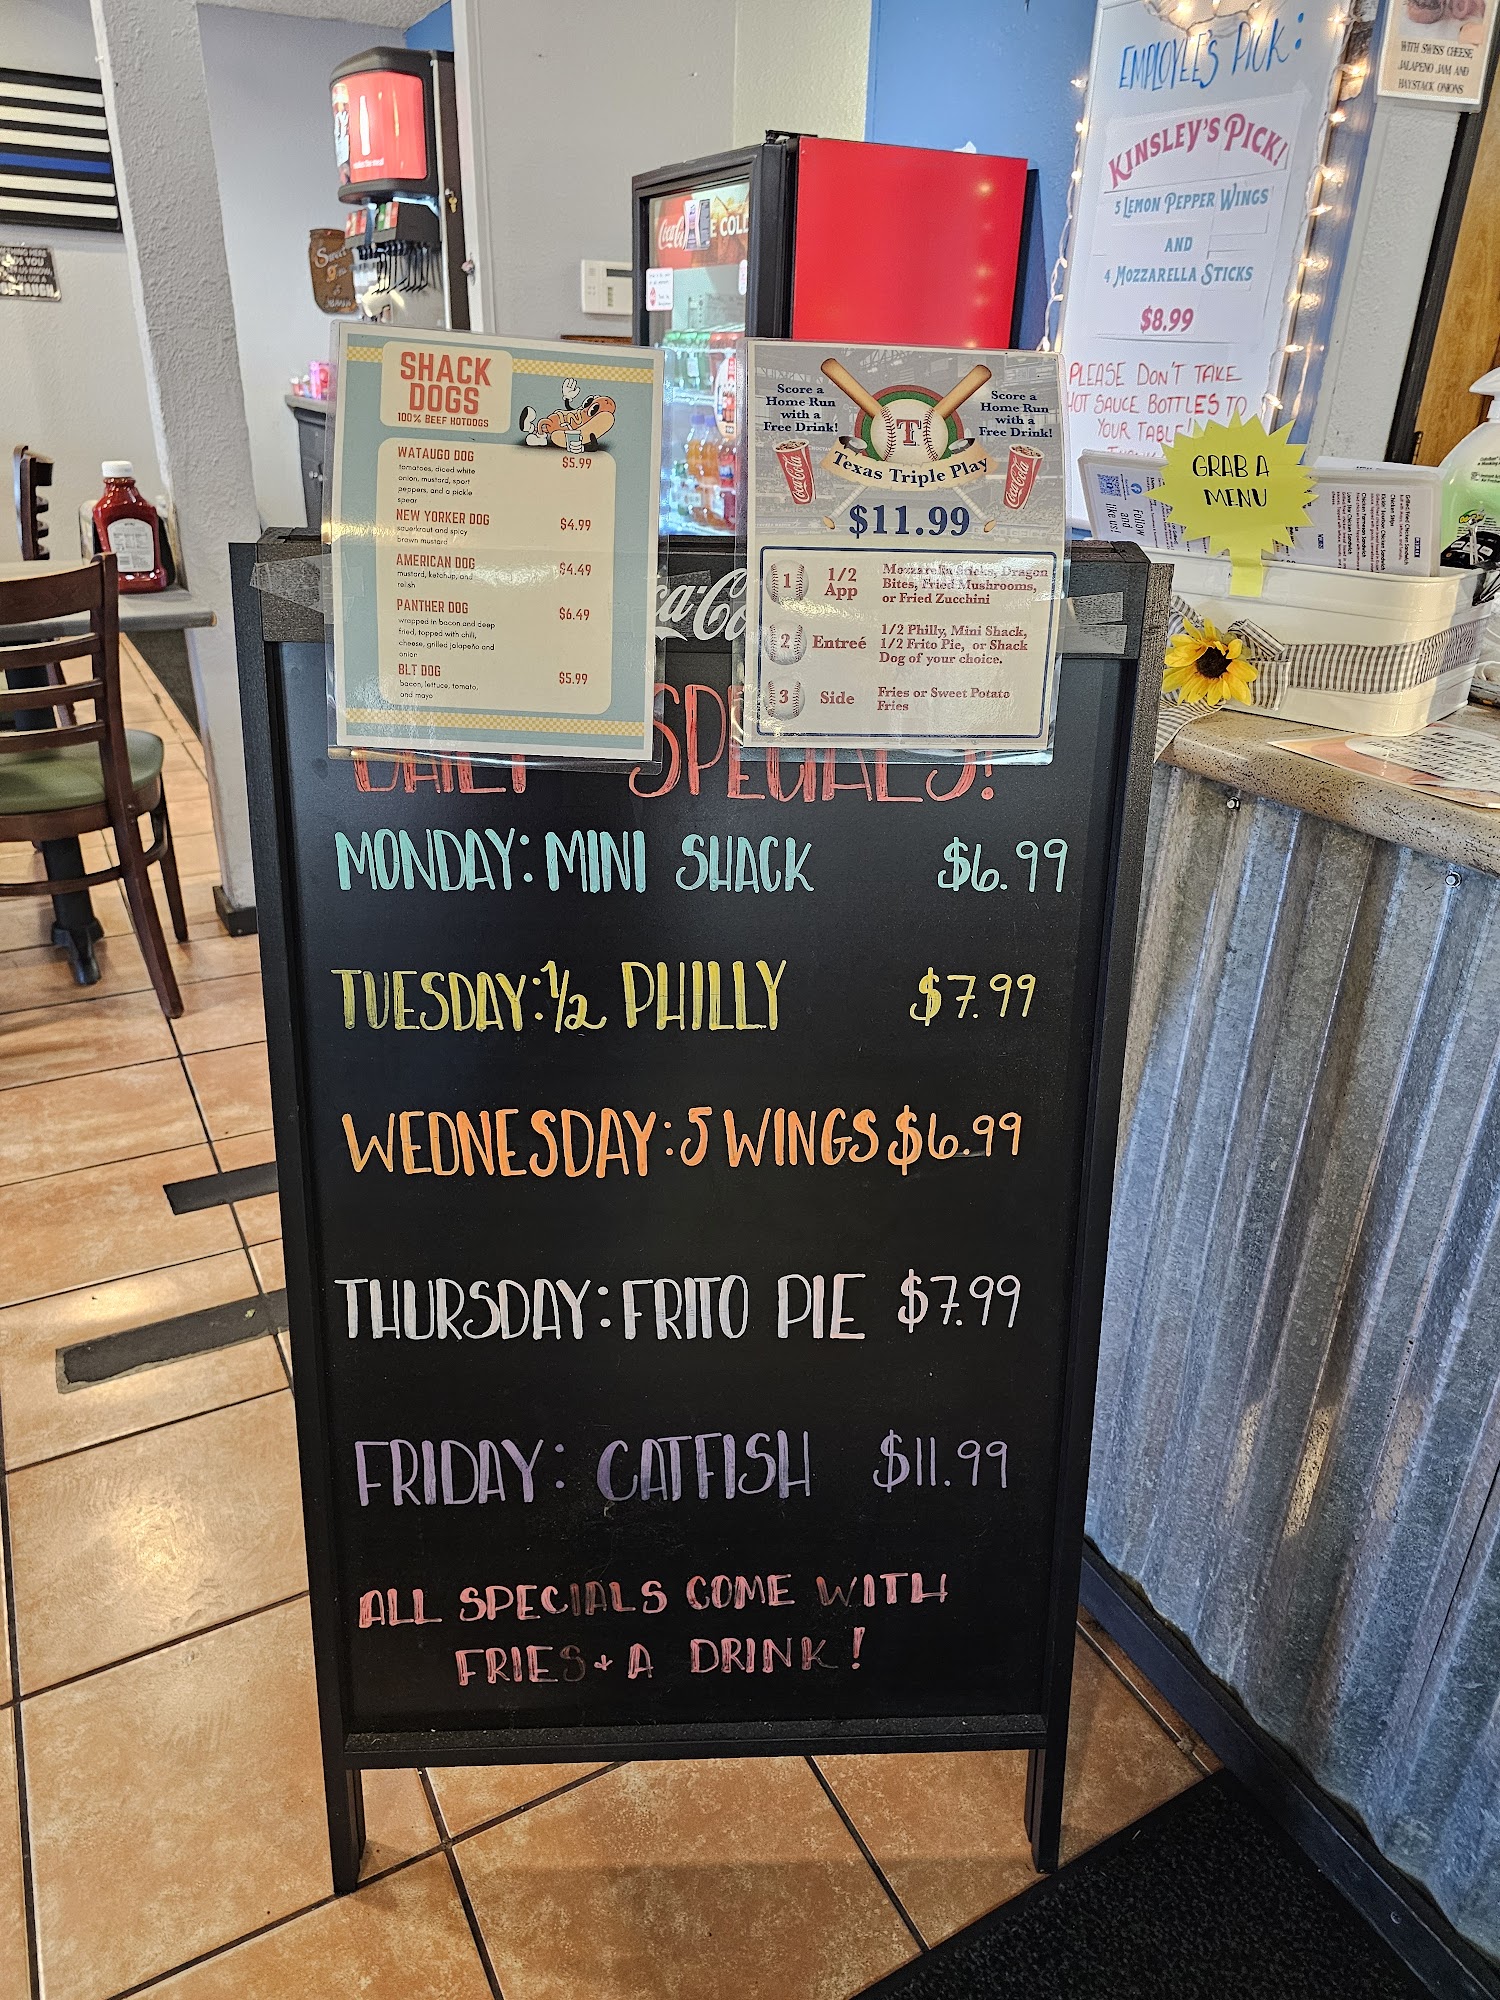 EMPLOYEE'S PICK:
KINSLEY'S PICK!
5 LEMON PEPPER WINGS
AND
4 MOZZARELLA STICKS
$8.99
PLEASE DON'T TAKE
HOT SAUCE BOTTLES TO
YOUR TABLE!
WITH SWISS CHEESE,
JALAPENO JAM AND
HAYSTACK ONIONS
GRAB A
MENU
Follow
and
like us
Coca-Cola
SHACK
DOGS
100% BEEF HOTDOGS
WATAUGO DOG $5.99
tomatoes, diced white
onion, mustard, sport
peppers, and a pickle
spear
NEW YORKER DOG $4.99
sauerkraut and spicy
brown mustard
AMERICAN DOG $4.49
mustard, ketchup, and
relish
PANTHER DOG $6.49
wrapped in bacon and deep
fried, topped with chili,
cheese, grilled jalapeño and
onion
BLT DOG $5.99
bacon, lettuce, tomato,
and mayo
Score a
Home Run
with a
Free Drink!
T
Score a
Home Run
with a
Free Drink!
Coca-Cola
Coca-Cola
Texas Triple Play
$11.99
1 1/2 App Mozzarella Sticks, Dragon
Bites, Fried Mushrooms,
or Fried Zucchini
2 Entreé 1/2 Philly, Mini Shack,
1/2 Frito Pie, or Shack
Dog of your choice.
3 Side Fries or Sweet Potato
Fries
DAILY SPECIALS!
MONDAY: MINI SHACK $6.99
TUESDAY: 1/2 PHILLY $7.99
WEDNESDAY: 5 WINGS $6.99
THURSDAY: FRITO PIE $7.99
FRIDAY: CATFISH $11.99
ALL SPECIALS COME WITH
FRIES + A DRINK!